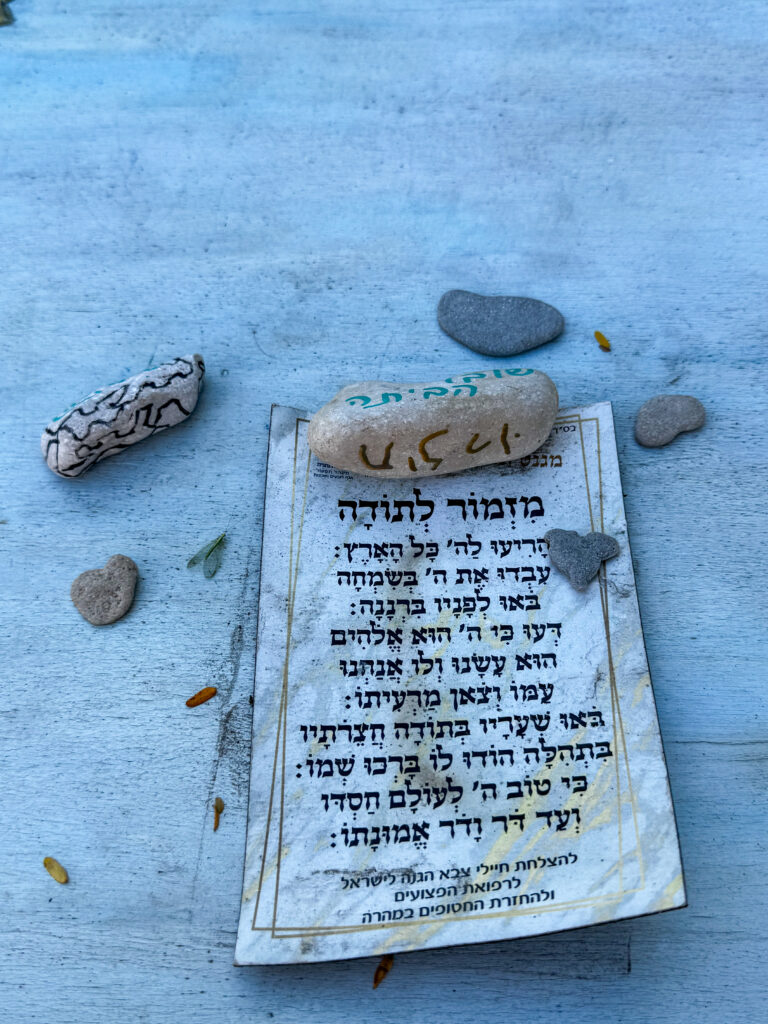 שובו
הביתה
בס"ד
מגנט
מִזְמוֹר לְתוֹדָה
הָרִיעוּ לַה' כָּל הָאָרֶץ:
עִבְדוּ אֶת ה' בְּשִׂמְחָה
בֹּאוּ לְפָנָיו בִּרְנָנָה:
דְּעוּ כִּי ה' הוּא אֱלֹהִים
הוּא עָשָׂנוּ וְלוֹ אֲנַחְנוּ
עַמּוֹ וְצֹאן מַרְעִיתוֹ:
בֹּאוּ שְׁעָרָיו בְּתוֹדָה חֲצֵרֹתָיו
בִּתְהִלָּה הוֹדוּ לוֹ בָּרְכוּ שְׁמוֹ:
כִּי טוֹב ה' לְעוֹלָם חַסְדּוֹ
וְעַד דֹּר וָדֹר אֱמוּנָתוֹ:
להצלחת חיילי צבא הגנה לישראל
לרפואת הפצועים
ולהחזרת החטופים במהרה